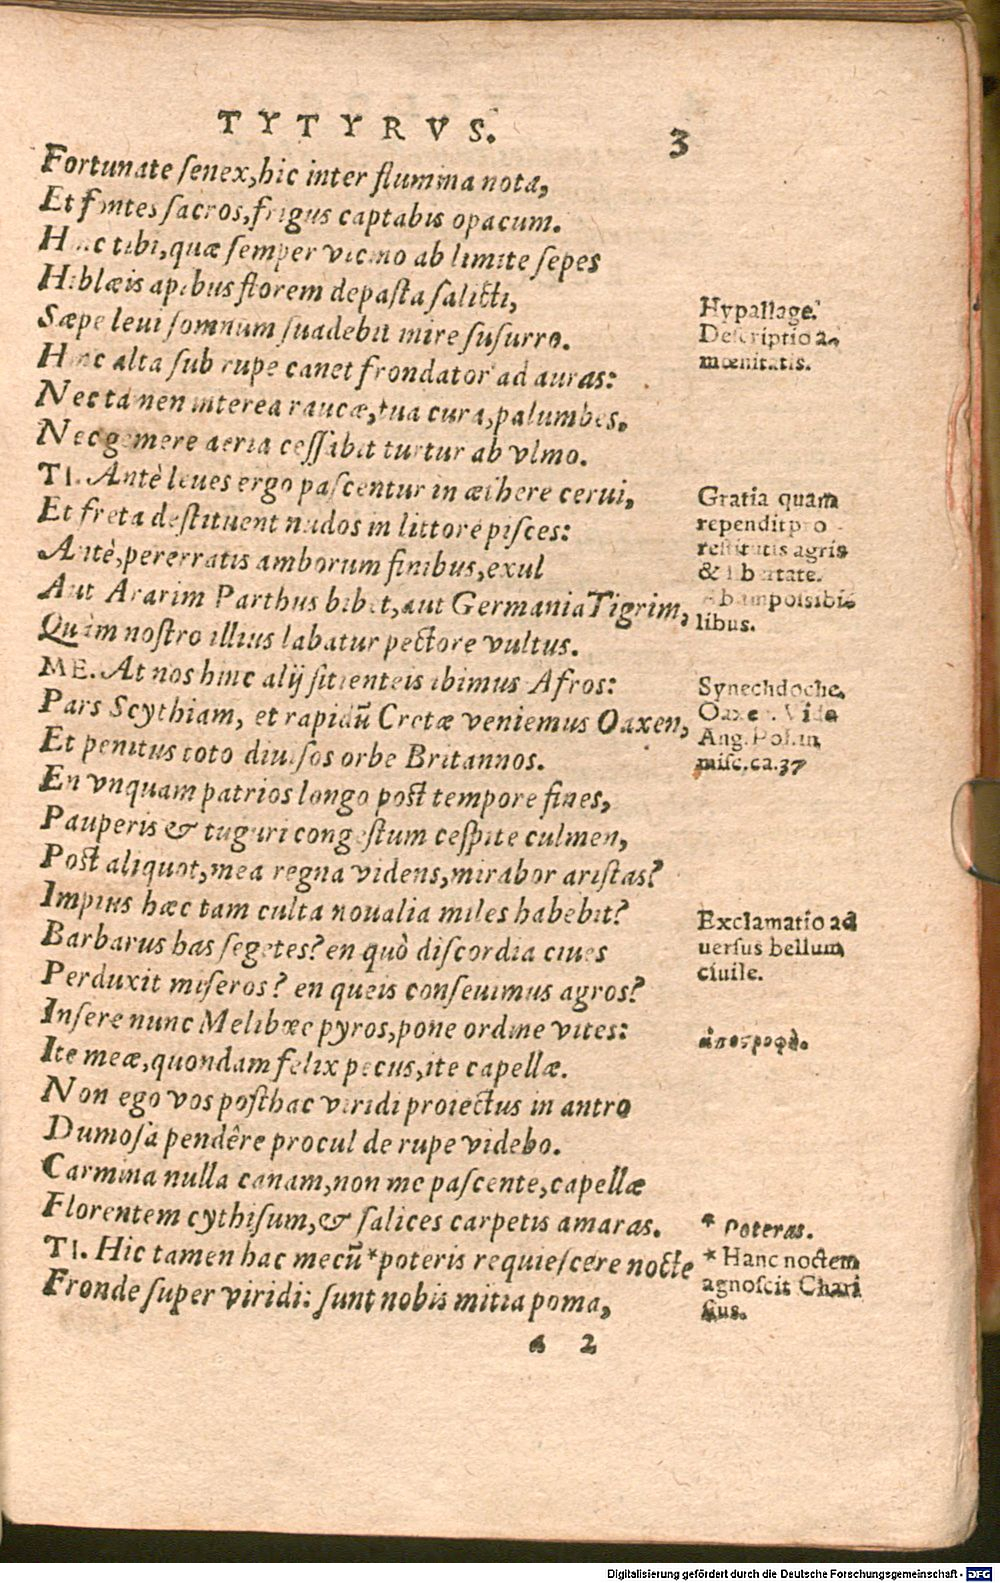 TYTYRVS. 3
Fortunate ſenex, hic inter flumina nota,
Et fontes ſacros, frigus captabis opacum.
Hinc tibi, quæ ſemper vicino ab limite ſepes
Hiblæis apibus florem depaſta ſalicti,
Sæpe leui ſomnum ſuadebit mire ſuſurro.
Hinc alta ſub rupe canet frondator ad auras:
Nec tamen interea raucæ, tua cura, palumbes.
Nec gemere aeria ceſſabit turtur ab vlmo.
TI. Antè leues ergo paſcentur in æthere cerui,
Et freta deſtituent nudos in littore piſces:
Antè, pererratis amborum finibus, exul
Aut Ararim Parthus bibet, aut Germania Tigrim,
Quàm noſtro illius labatur pectore vultus.
ME. At nos hinc alij ſitienteis ibimus Afros:
Pars Scythiam, et rapidū Cretæ veniemus Oaxen,
Et penitus toto diuiſos orbe Britannos.
En vnquam patrios longo poſt tempore fines,
Pauperis & tuguri congeſtum ceſpite culmen,
Poſt aliquot, mea regna videns, mirabor ariſtas?
Impius hæc tam culta noualia miles habebit?
Barbarus has ſegetes? en quò diſcordia ciues
Perduxit miſeros? en queis conſeuimus agros?
Inſere nunc Melibœe pyros, pone ordine vites:
Ite meæ, quondam felix pecus, ite capellæ.
Non ego vos poſthac viridi proiectus in antro
Dumoſa pendêre procul de rupe videbo.
Carmina nulla canam, non me paſcente, capellæ
Florentem cythiſum, & ſalices carpetis amaras.
TI. Hic tamen hac mecū *poteris requieſcere nocte
Fronde ſuper viridi: ſunt nobis mitia poma,
a 2
Hypallage.
Deſcriptio a-
mœnitatis.
Gratia quam
rependit pro
reſtitutis agris
& libertate.
libus.
Synechdoche.
Oaxen. Vide
Ang. Pol. in
miſc. ca. 37
Exclamatio ad
uerſus bellum
ciuile.
ἀποςροφὴ.
* Poteras.
* Hanc noctem
agnoſcit Chari
ſius.
Digitalisierung gefördert durch die Deutsche Forschungsgemeinschaft - DFG